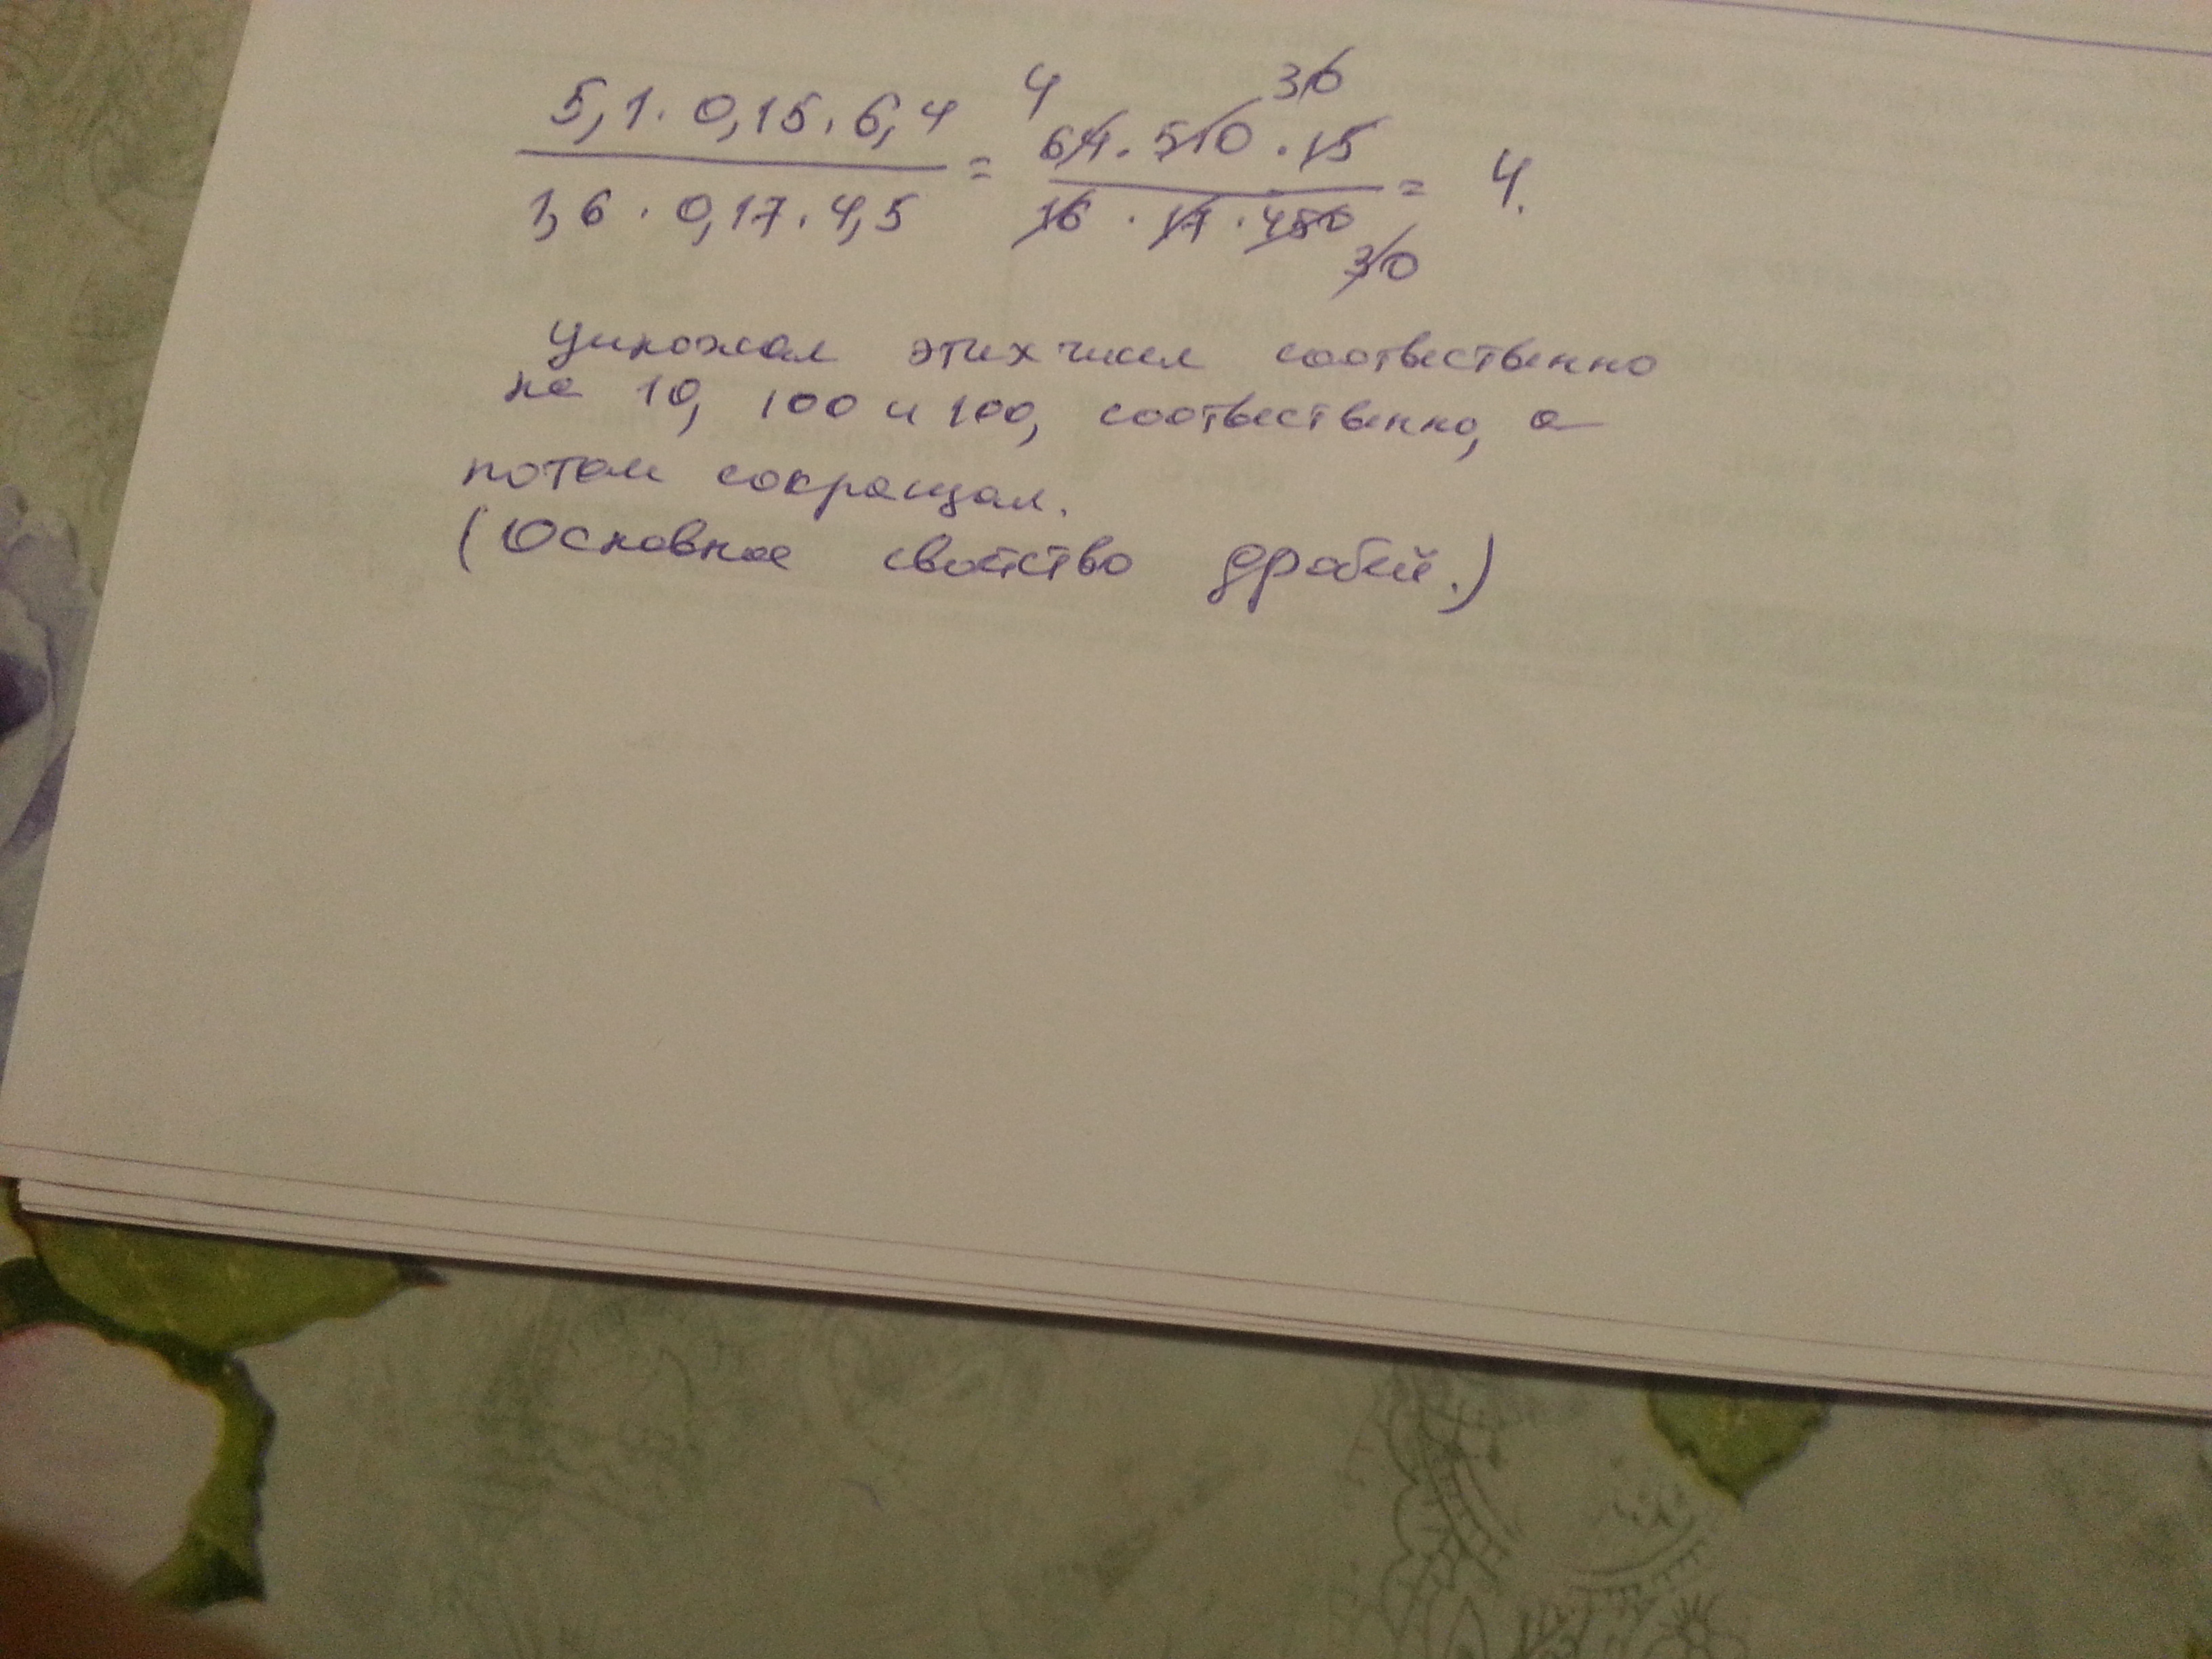 5,1 · 0,15 · 6,4 / 1,6 · 0,17 · 4,5 = 64 · 510 · 15 / 16 · 17 · 450 = 4.
4 30
30
Умножал этих чисел соотвественно
на 10, 100 и 100, соотвественно, а
потом сокращал.
(Основное свойство дробей.)